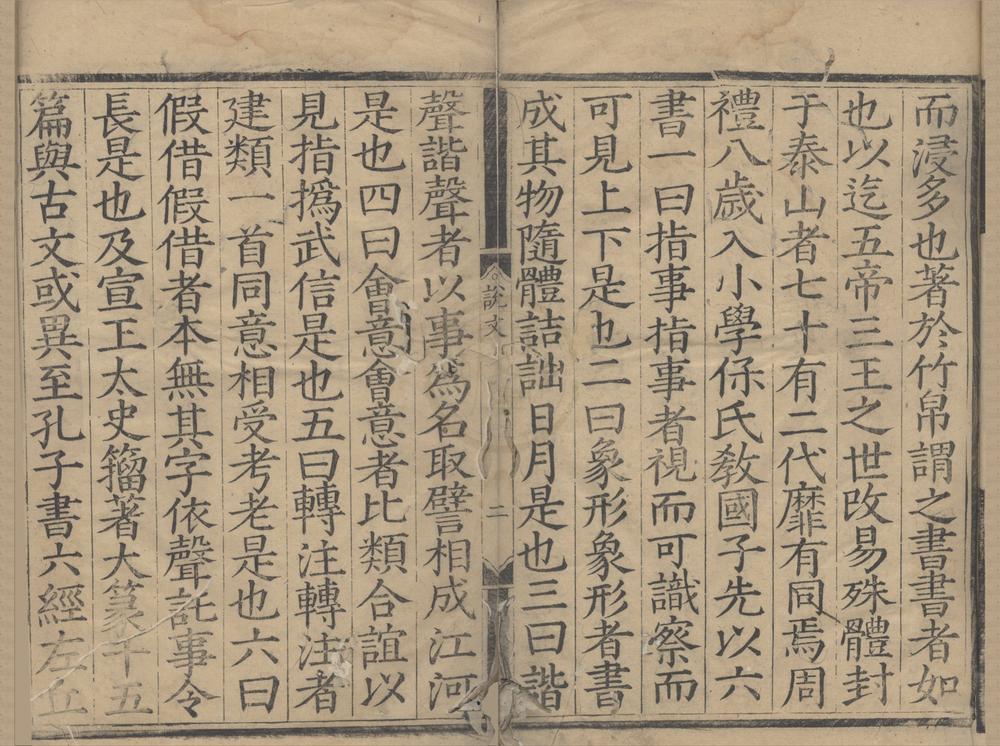 而浸多也著於竹帛謂之書書者如
也以迄五帝三王之世改易殊體封
于泰山者七十有二代靡有同焉周
禮八歲入小學保氏敎國子先以六
書一曰指事指事者視而可識察而
可見上下是也二曰象形象形者書
成其物隨體詰詘日月是也三曰諧
說文
二
聲諧聲者以事爲名取譬相成江河
是也四曰會意會意者比類合誼以
見指撝武信是也五曰轉注轉注者
建類一首同意相受考老是也六曰
假借假借者本無其字依聲託事令
長是也及宣王太史籒著大篆十五
篇與古文或異至孔子書六經左丘